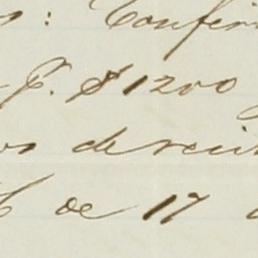 : Confir
P. $1200
os de reci
de 17